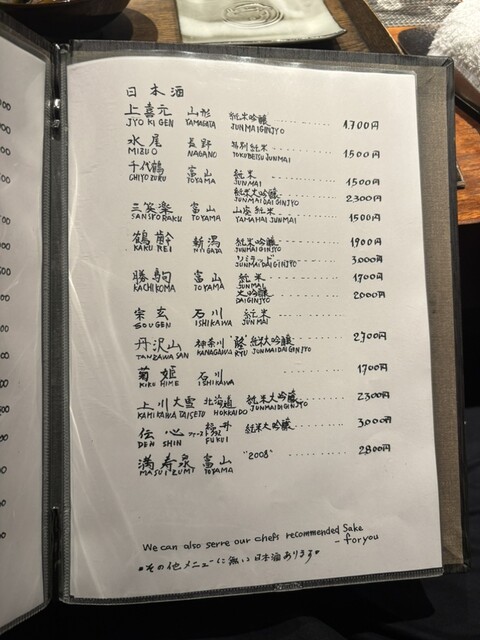 日本酒
上喜元 山形 純米吟醸 1,700円
JYO KI GEN YAMAGATA JUNMAIGINJYO
水尾 長野 特別純米 1500円
MIZUO NAGANO TOKUBETSU JUNMAI
千代鶴 富山 純米 1500円
CHIYOZURU TOYAMA JUNMAI
純米大吟醸 2300円
JUNMAI DAIGINJYO
三笑楽 富山 山廃純米 1500円
SANSYO RAKU TOYAMA YAMAHAI JUNMAI
鶴齢 新潟 純米吟醸 1900円
KAKU REI NIIGATA JUNMAIGINJYO
3,000円
JUNMAI DAIGINJYO
勝駒 富山 純米 1700円
KACHIKOMA TOYAMA JUNMAI
大吟醸 2000円
DAIGINJYO
宗玄 石川 純米
SOUGEN ISHIKAWA JUNMAI
丹沢山 神奈川 純米大吟醸 2,700円
TANZAWA SAN KANAGAWA RYU JUNMAIDAIGINJYO
菊姫 石川 1700円
KIKU HIME ISHIKAWA
上川大雪 北海道 純米大吟醸 2300円
KAMIKAWA TAISETU HOKKAIDO JUNMAIDIGINJYO
伝心 福井 純米大吟醸 3,000円
DEN SHIN FUKUI
満寿泉 富山 "2008" 2800円
MASUIZUMI TOYAMA
We can also serve our chefs recommended Sake
- for you
*その他 メニューに無い日本酒あります*